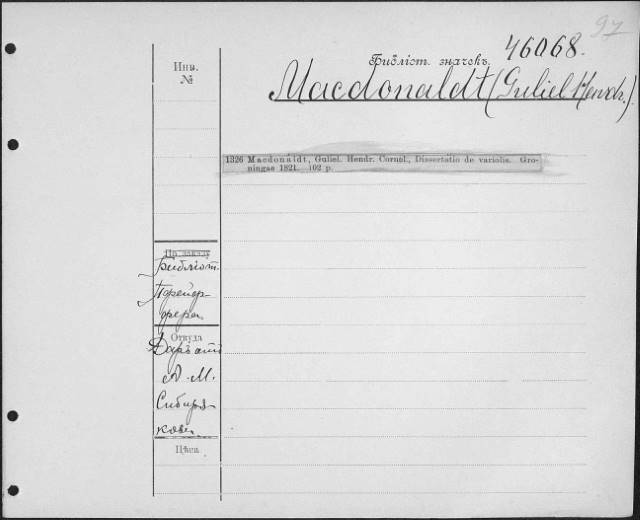 97
Библіот. значекъ. 46068.
Инв.
№
Macdonaldt (Guliel Hendr.)
1326 Macdonaldt, Guliel. Hendr. Cornel., Dissertatio de variolis. Gro-
ningae 1821. 102 p.
По заказу
Библіот.
Откуда
Даръ отъ
А. М.
Сибиря-
кова.
Цѣна